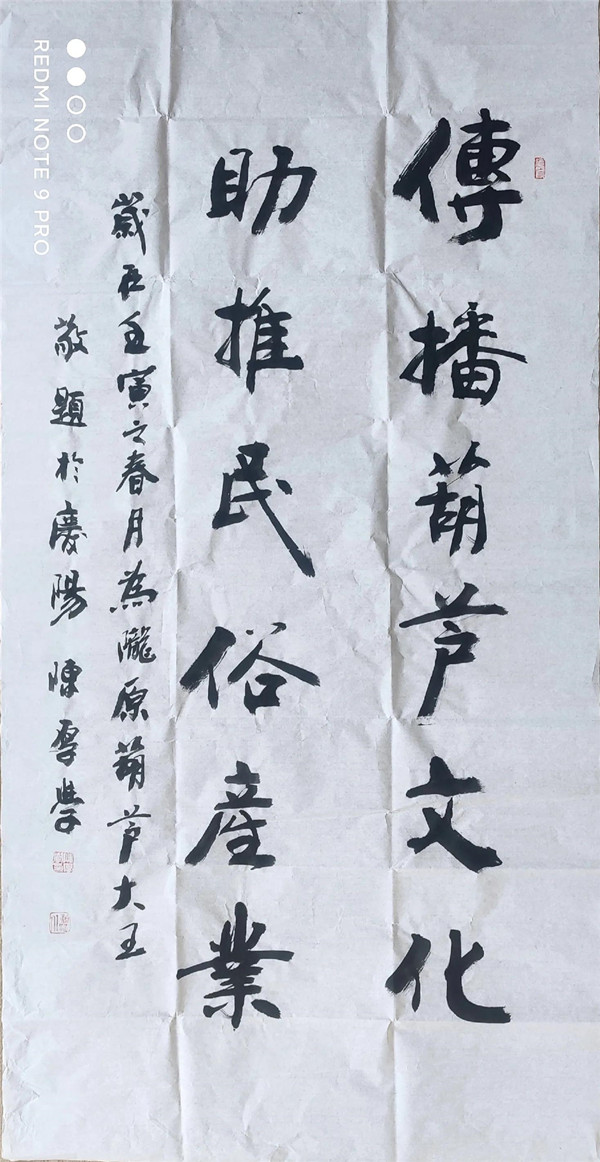 傳播葫芦文化
助推民俗産業
歲在壬寅之春月為隴原葫芦大王
敬題於慶陽 陳厚學
REDMI NOTE 9 PRO